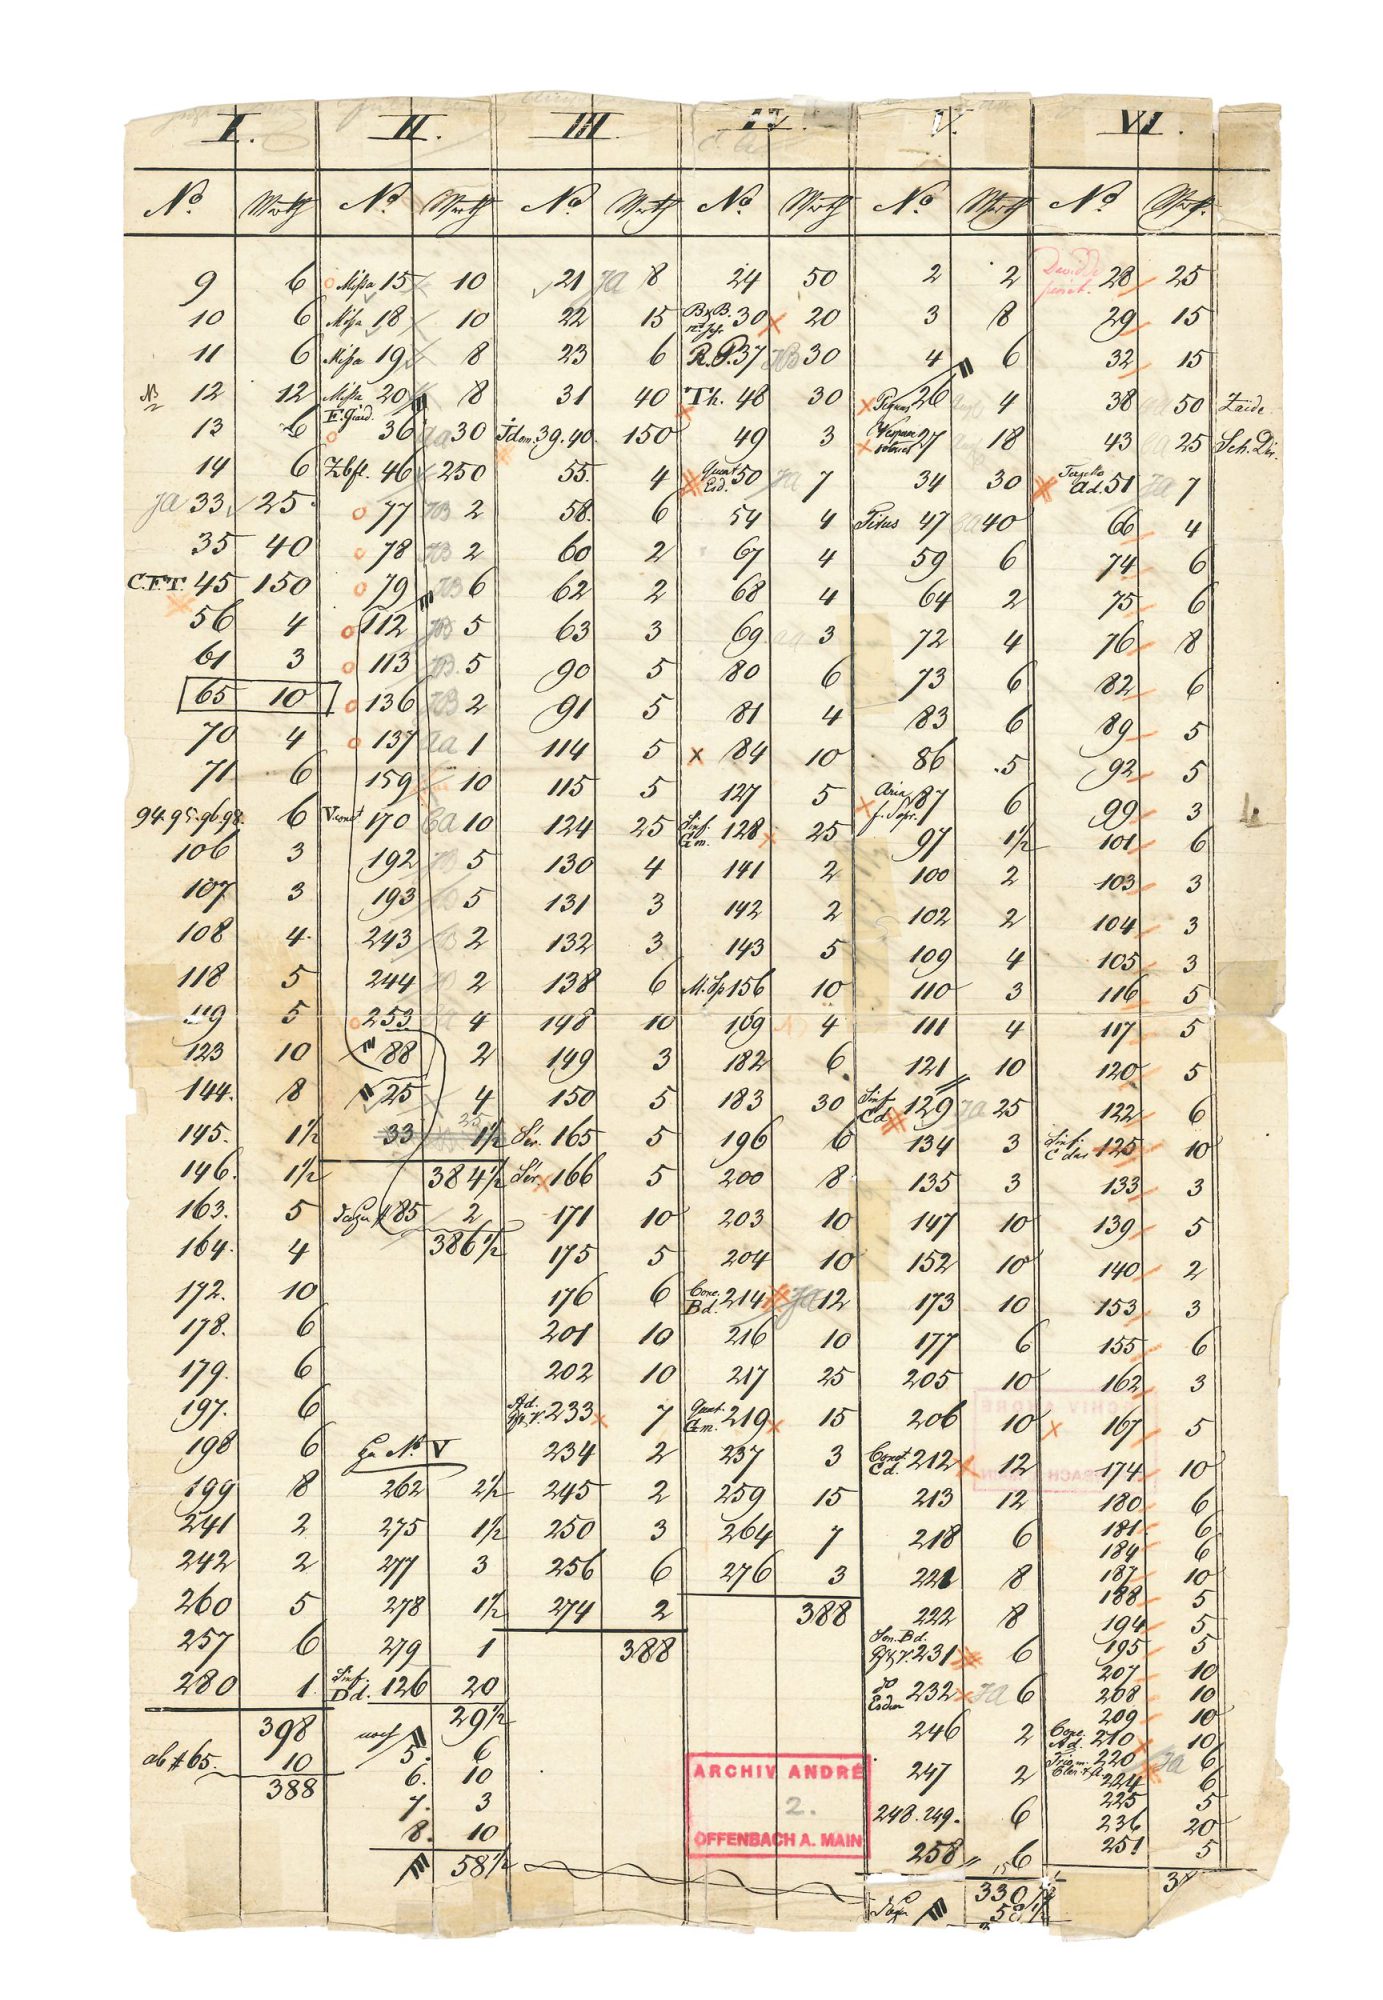 I.
No. Werth
9 6
10 6
11 6
NB 12 12
13 6
14 6
JA 33 25
35 40
C.F.T. 45 150
56 4
61 3
65 10
70 4
71 6
94.95.96.98. 6
106 3
107 3
108 4
118 5
119 5
123 10
144. 8
145. 1½
146. 1½
163. 5
164. 4
172. 10
178. 6
179. 6
197. 6
198 6
199 8
241 2
242 2
260 5
257 6
280 1
398
ab # 65. 10
388
II.
No. Werth
Missa 15 10
Missa 18 10
Missa 19 8
Missa 20 8
F. Giard.
36 aa 30
Zbfl. 46 250
77 JB 2
78 JB 2
79 JB 6
112 JB 5
113 JB. 5
136 JB 2
137 aa 1
159 10
170 Ca 10
192 JB 5
193 5
243 2
244 2
253 4
III 88 2
II 25 4
33 1½
384½
# 85 2
386½
Zu No. V
262 2½
275 1½
277 3
278 1½
279 1
Sinf.
Dd. 126 20
29½
noch II
5. 6
6. 10
7. 3
8. 10
III 58½
III.
No. Werth
21 JA 8
22 15
23 6
31 40
Idom. 39.40. 150
55. 4
58. 6
60 2
62 2
63 3
90 5
91 5
114 5
115 5
124 25
130 4
131 3
132 3
138 6
148 10
149 3
150 5
Ser. 165 5
Ser. 166 5
171 10
175 5
176 6
201 10
202 10
Ad.
233 7
234 2
245 2
250 3
256 6
274 2
388
IV.
No. Werth
24 50
B&B.
30 20
R.P. 37 JB 30
Th. 48 30
49 3
Quint
Esd. 50 JA 7
54 4
67 4
68 4
69. aa 3
80 6
81 4
x 84 10
127 5
Sinf.
Gm. 128 25
141 2
142 2
143 5
M.Sp 156 10
169 4
182 6
183 30
196 6
200 8
203 10
204 10
Conc.
Bd. 214 JA 12
216 10
217 25
Quint.
Gm. 219 15
237 3
259 15
264 7
276 3
388
V.
No. Werth
2 2
3 8
4 6
26 4
Vesperae
27 18
34 30
Titus 47 Ca 40
59 6
64 2
72 4
73 6
83 6
86 5
Aria
f. Sopr. 87 6
97 1½
100 2
102 2
109 4
110 3
111 4
121 10
Sinf
Cd 129 JA 25
134 3
135 3
147 10
152 10
173 10
177 6
205 10
206 10
Conct
Cd. 212 12
213 12
218 6
221 8
222 8
Son. Bd.
231 6
232 JA 6
246 2
247 2
248.249. 6
258 6
330½
III 58½
VI.
No. Werth
Davidde
penit. 28 25
29 15
32 15
38 aa 50 Zaide
43 Ca 25 Sch. Dir.
Terzetto
Ad. 51 JA 7
66 4
74 6
75 6
76 8
82 6
89 5
92 5
99 3
101 6
103 3
104 3
105 3
116 5
117 5
120 5
122 6
Sinf:
C dur 125 10
133 3
139 5
140 2
153 3
155 6
162 3
167 5
174 10
180 6
181 6
184 6
187 10
188 5
194 5
195 5
207 10
208 10
209 10
Conc.
Ad. 210 10
Trio m.
220 JA 6
224 6
225 5
236 20
251 5
ARCHIV ANDRÉ
2.
OFFENBACH A. MAIN